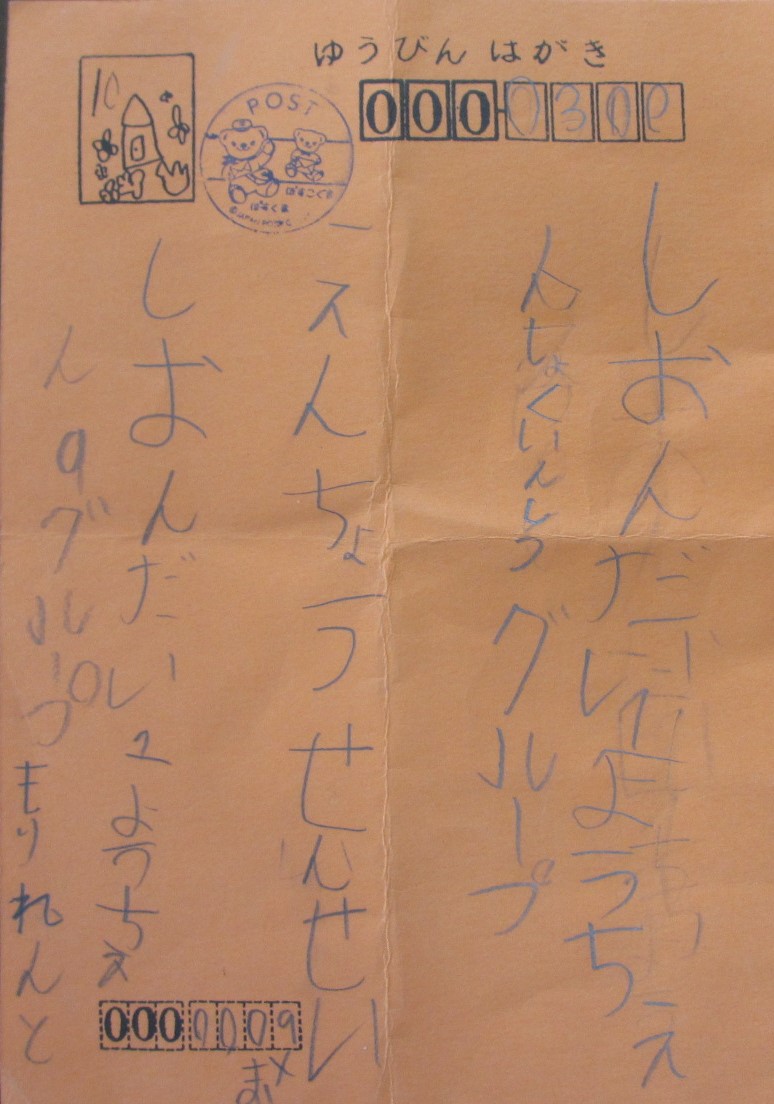 ゆうびん はがき
10
POST
ぽすくま
ぽすこぐま
000-0309
しおんだい1ようちえ
んしょくいんしつ グループ
えんちょうせんせい
しおんだい1ようちえ
ん 9グループ もりれんと
0000009